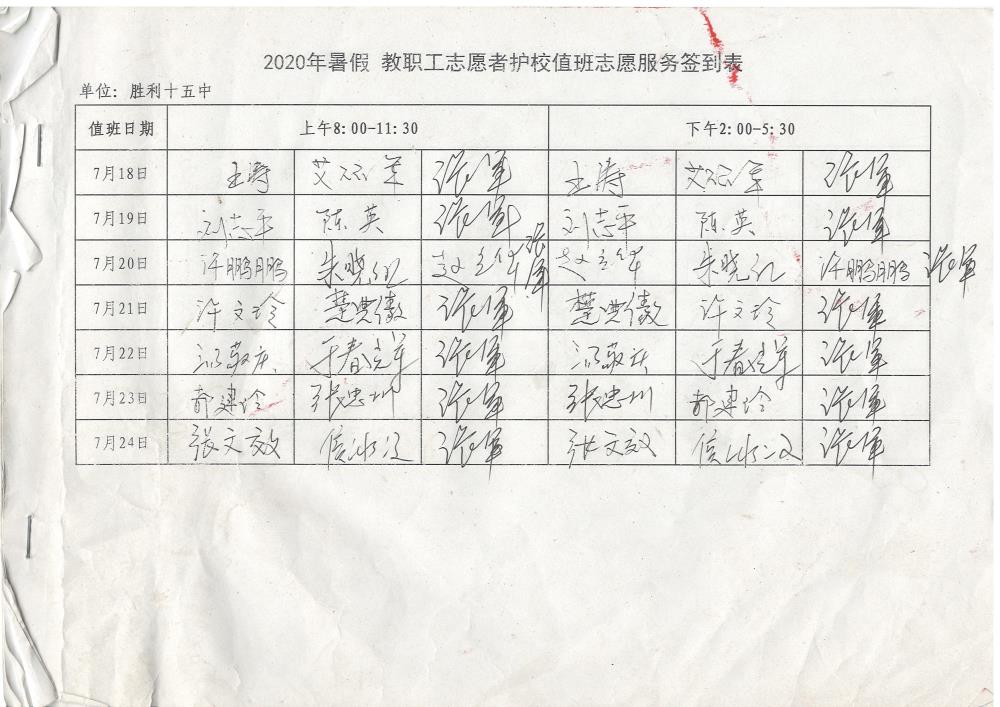 2020年暑假 教职工志愿者护校值班志愿服务签到表
单位：胜利十五中
值班日期 上午8:00-11:30 下午2:00-5:30
7月18日 王涛 张军 王涛 张军
7月19日 刘志平 陈英 张军 刘志平 陈英 张军
7月20日 许鹏鹏 朱晓红 张军 朱晓红 许鹏鹏 张军
7月21日 许文玲 张军 许文玲 张军
7月22日 张军 张军
7月23日 郝建玲 张忠川 张军 张忠川 郝建玲 张军
7月24日 张文效 张军 张文效 张军